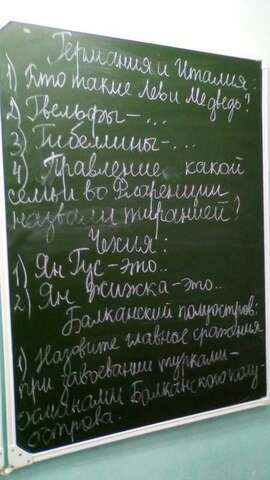 Германия и Италия:
1) Кто такие Лев и Медведь?
2) Гвельфы - ...
3) Гибелины - ...
4) Правление какой
семьи во Флоренции
назвали тиранией?
Чехия:
1) Ян Гус - это..
2) Ян Жижка - это..
Балканский полуостров:
1) Назовите главные сражения
при завоевании турками-
османами Балканского полу-
острова.